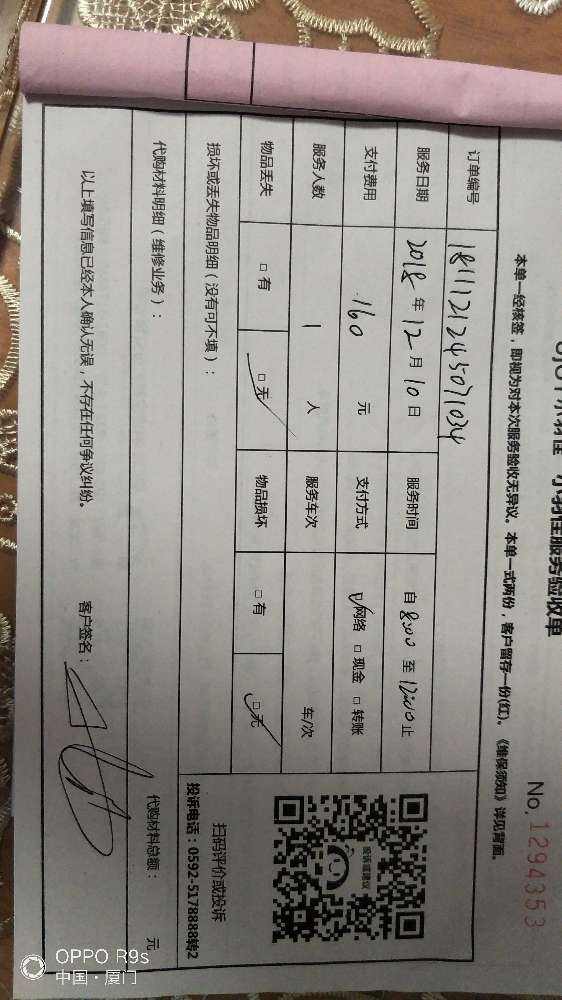 小羽佳服务验收单
No. 1294353
本单一经核签，即视为对本次服务验收无异议。本单一式两份，客户留存一份(红)。《维保须知》详见背面。
订单编号 181112124507034
服务日期 2018 年 12 月 10 日 服务时间 自 8:00 至 12:00 止
支付费用 160 元 支付方式 网络 □ 现金 □ 转账
服务人数 1 人 服务车次 车/次
物品丢失 □ 有 □ 无 物品损坏 □ 有 □ 无
投诉或建议
扫码评价或投诉
投诉电话：0592-5178888转2
损坏或丢失物品明细（没有可不填）：
代购材料明细（维修业务）：
代购材料总额： 元
以上填写信息已经本人确认无误，不存在任何争议纠纷。 客户签名：
OPPO R9s
中国·厦门